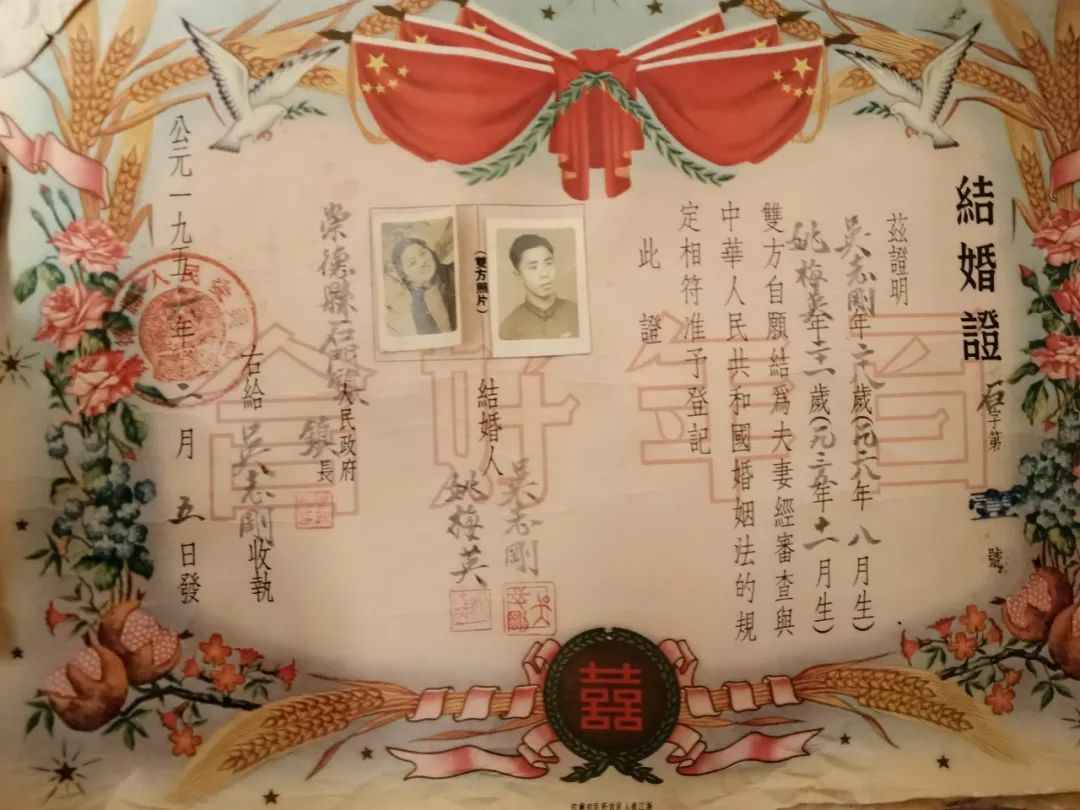 結婚證
石字第
號
茲證明
吳志剛年二十八歲(一九二八年八月生)
姚梅英年二十一歲(一九三五年十一月生)
雙方自願結爲夫妻經審查與
中華人民共和國婚姻法的規
定相符准予登記
此證
百年好合
結婚人
吳志剛
姚梅英
(雙方照片)
崇德縣石門鎮人民政府
鎮長
右給吳志剛收執
公元一九五六年二月五日發
囍